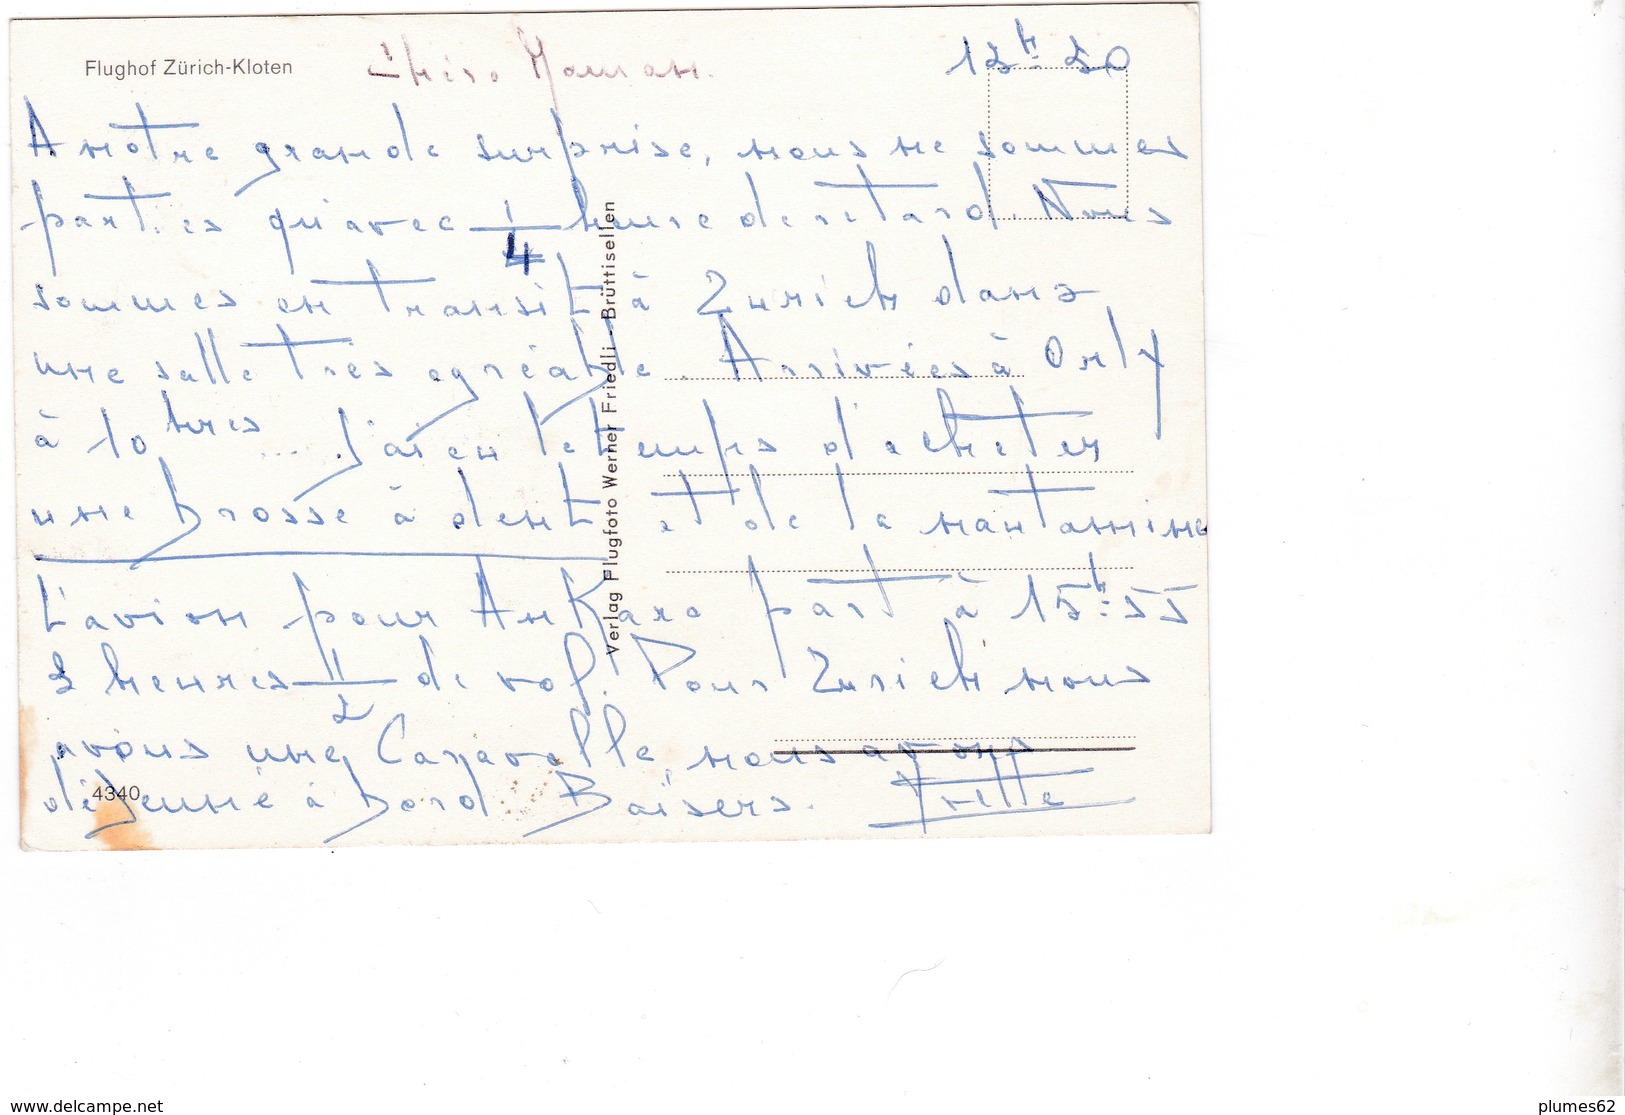 Flughof Zürich-Kloten
Chère Maman.
13h 50
A notre grande surprise, nous ne sommes
parties qu'avec 1/4 heure de retard. Nous
sommes en transit à Zurich dans
une salle très agréable. Arrivées à Orly
à 10 hres .... j'ai eu le temps d'acheter
une brosse à dent et de la nautamine
L'avion pour AnKara part à 15h 55
3 heures 1/2 de vol. Pour Zurich nous
avons une Caravelle, nous avons
déjeuné à bord Baisers.
Verlag Flugfoto Werner Friedli - Brüttisellen
4340
www.delcampe.net
plumes62